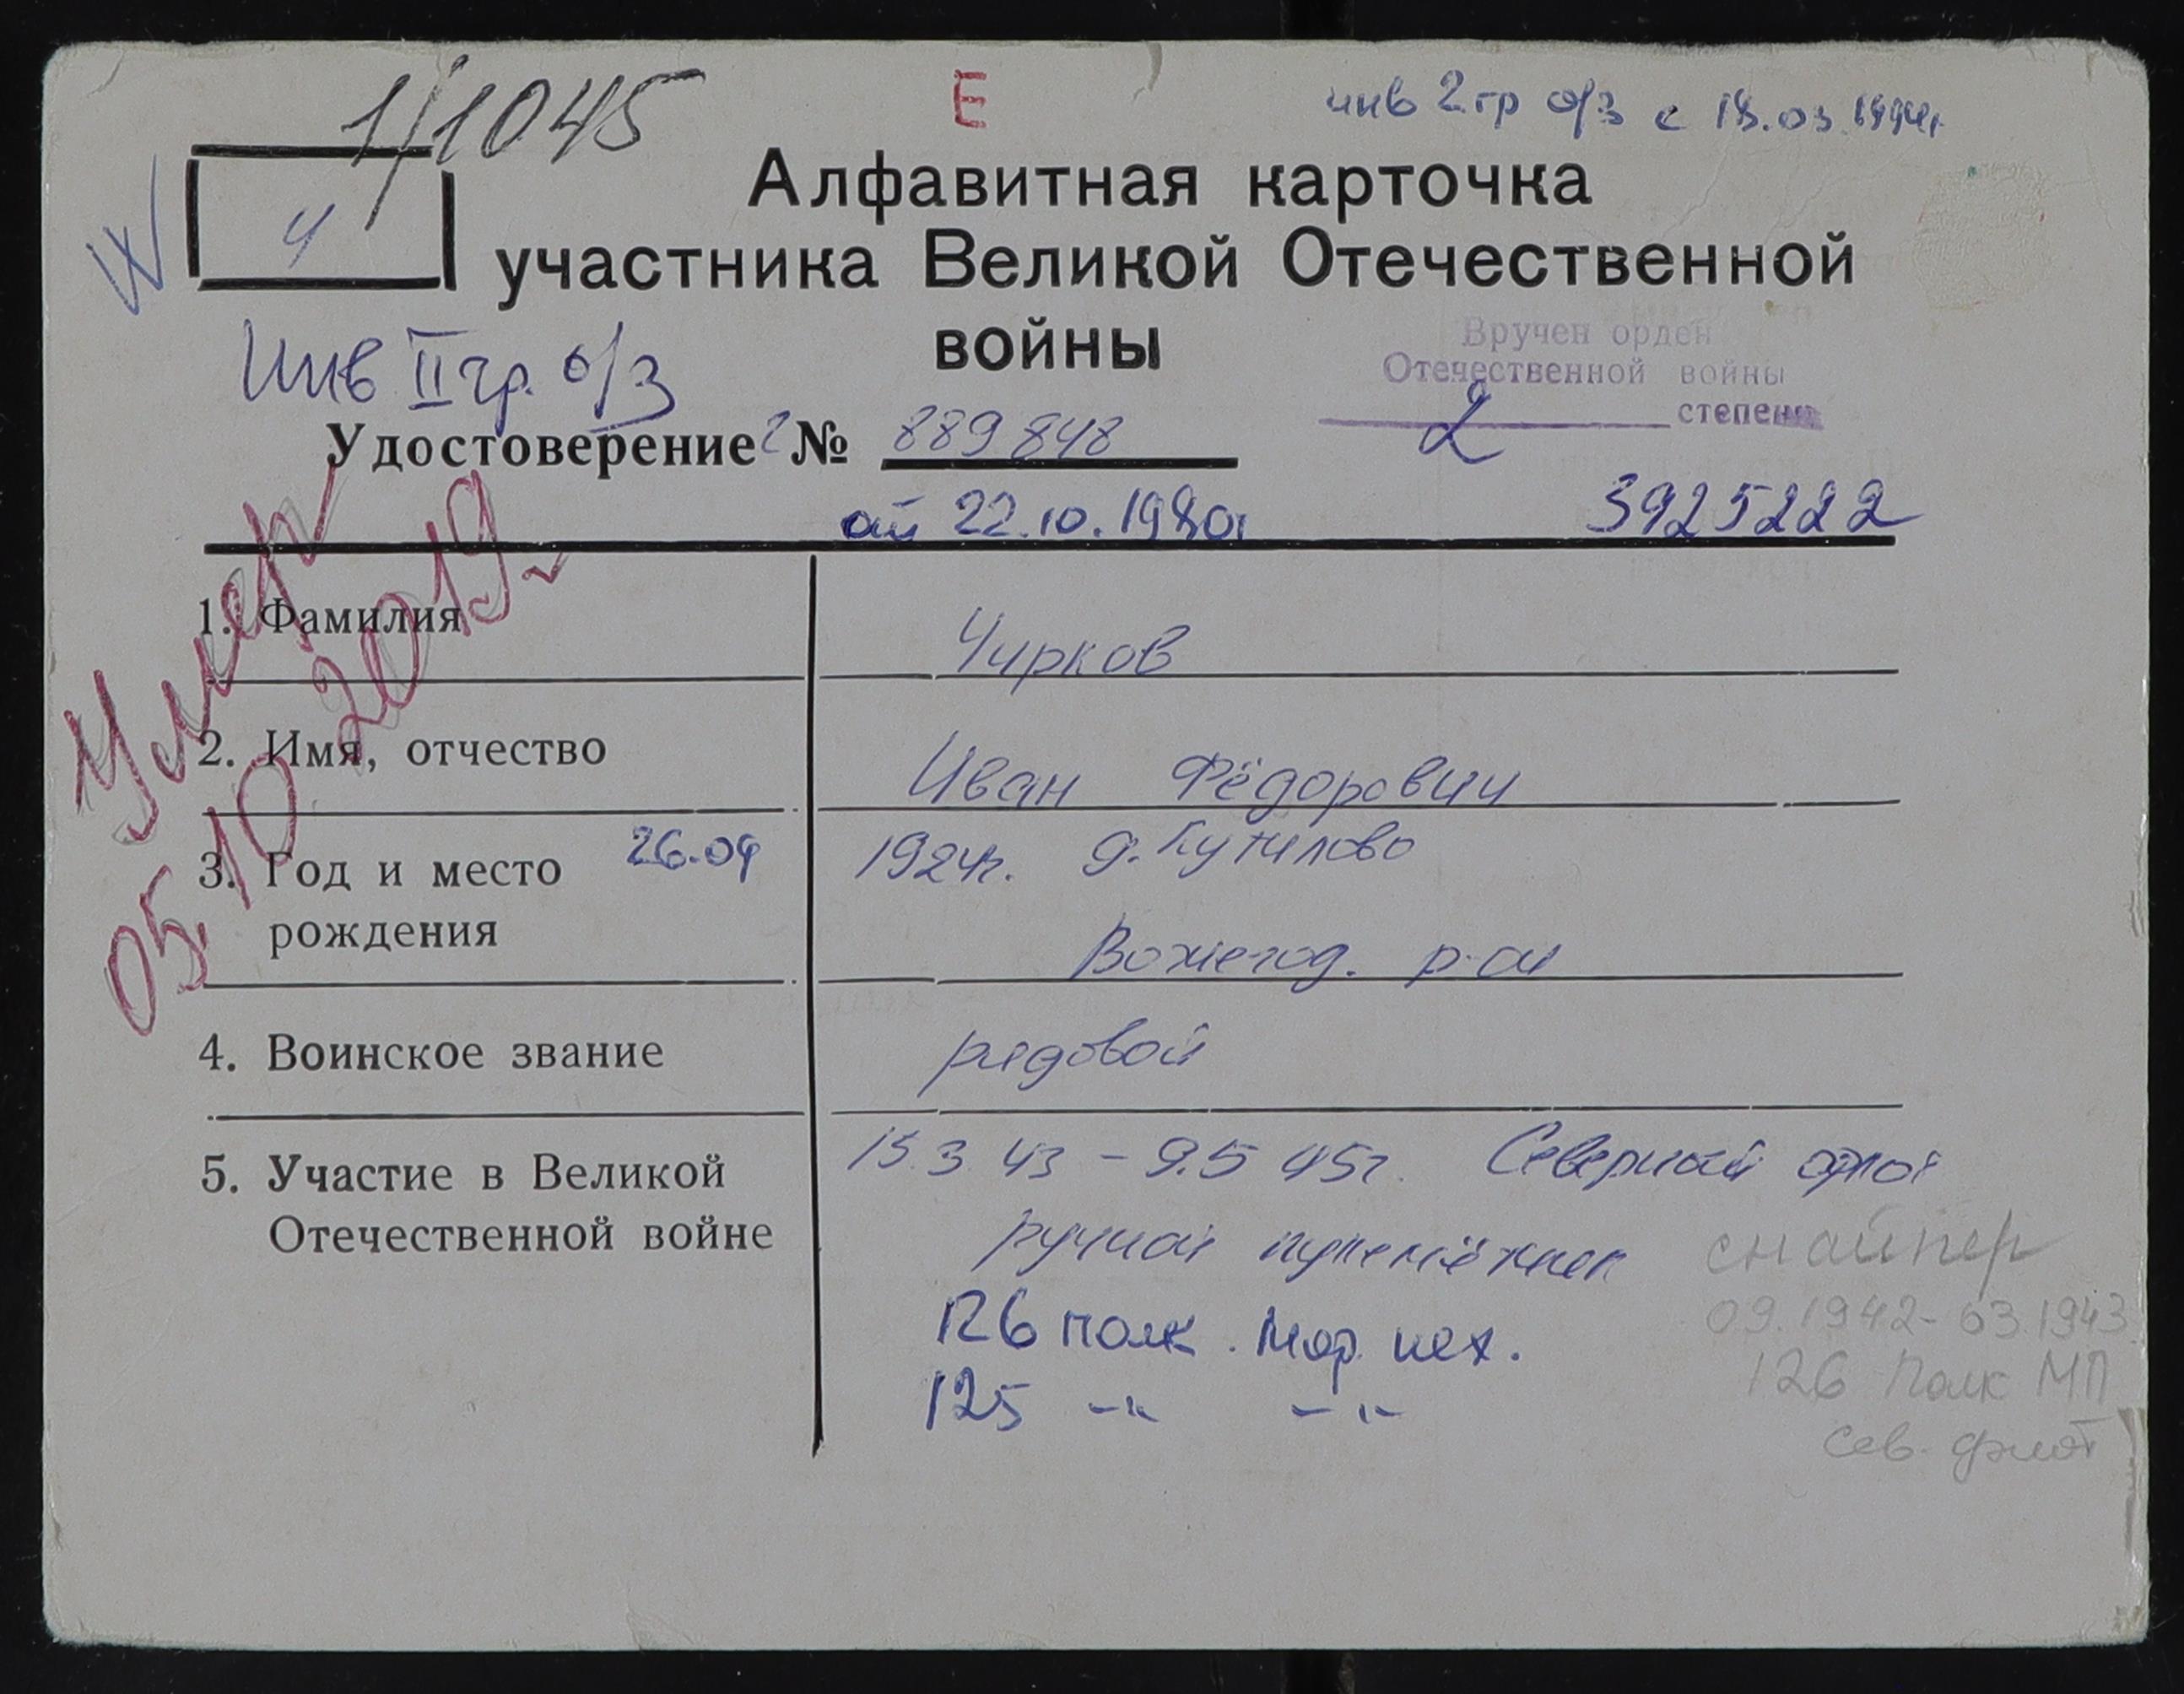 1/1045
Е
инв 2 гр о/з с 18.03.1994г
Ч
Алфавитная карточка
участника Великой Отечественной
войны
Инв II гр. о/з
Вручен орден
Отечественной войны
2 степени
Удостоверение № 889848
от 22.10.1980г
3925222
Умер
05.10 2019
1. Фамилия
Чирков
2. Имя, отчество
Иван Фёдорович
3. Год и место 26.09
1924г. д. Кутилово
рождения
Вожегод. р-он
4. Воинское звание
рядовой
5. Участие в Великой
15.3 43 - 9.5 45г. Северный флот
Отечественной войне
ручной пулемётчик
снайпер
09.1942-03 1943
126 полк мор. пех.
126 полк МП
125 -"- -"-
Сев. флот